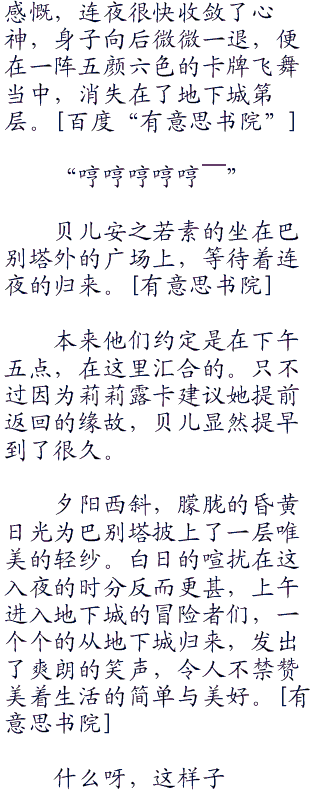 感慨，连夜很快收敛了心
神，身子向后微微一退，便
在一阵五颜六色的卡牌飞舞
当中，消失在了地下城第
层。[百度“有意思书院”]
“哼哼哼哼哼——”
贝儿安之若素的坐在巴
别塔外的广场上，等待着连
夜的归来。[有意思书院]
本来他们约定是在下午
五点，在这里汇合的。只不
过因为莉莉露卡建议她提前
返回的缘故，贝儿显然提早
到了很久。
夕阳西斜，朦胧的昏黄
日光为巴别塔披上了一层唯
美的轻纱。白日的喧扰在这
入夜的时分反而更甚，上午
进入地下城的冒险者们，一
个个的从地下城归来，发出
了爽朗的笑声，令人不禁赞
美着生活的简单与美好。[有
意思书院]
什么呀，这样子